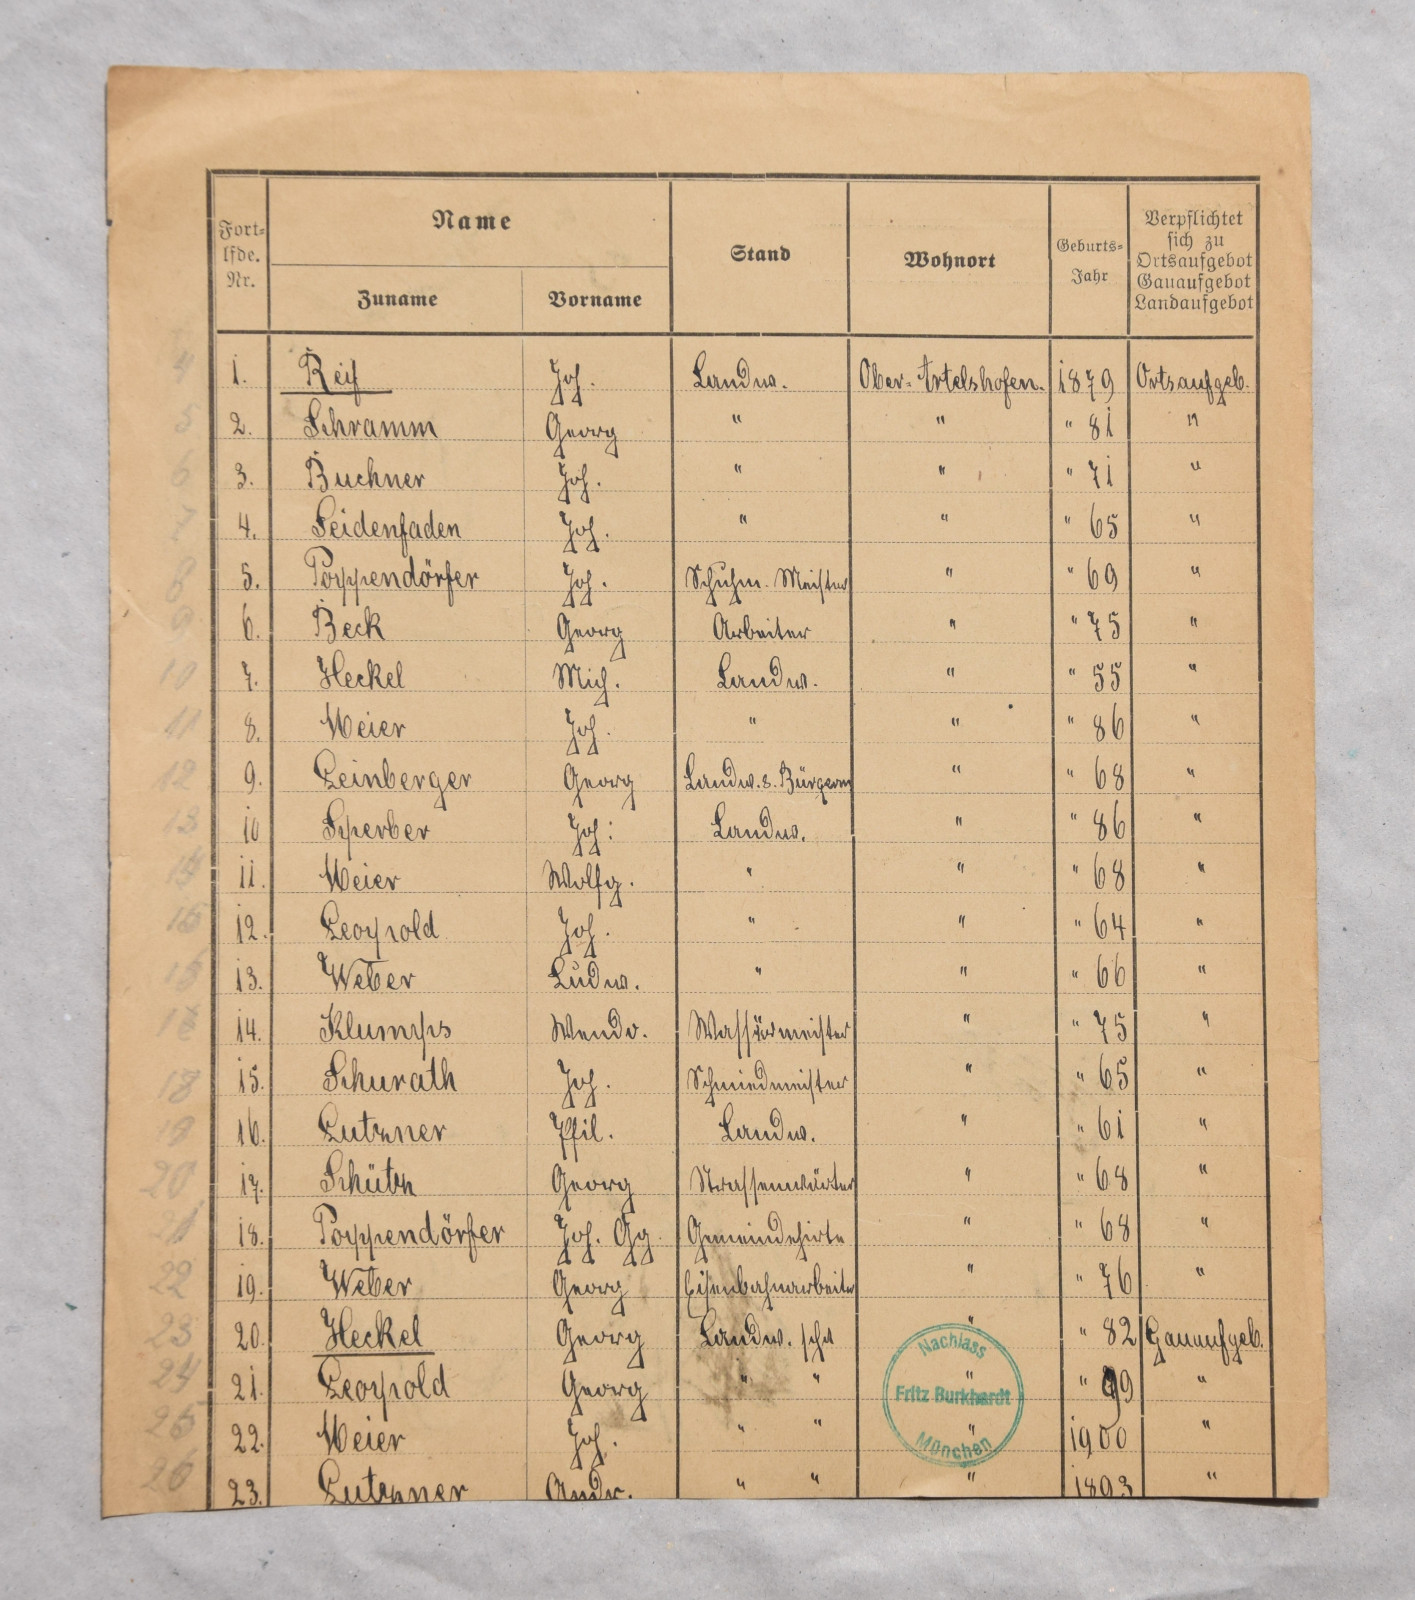 Fort-
lfde.
Nr.
Name
Zuname
Vorname
Stand
Wohnort
Geburts-
Jahr
Verpflichtet
sich zu
Ortsaufgebot
Gauaufgebot
Landaufgebot
1. Reif Joh. Landw. Ober-Artelshofen. 1879 Ortsaufgeb.
2. Schramm Georg " " " 81 "
3. Buchner Joh. " " " 71 "
4. Seidenfaden Joh. " " " 65 "
5. Poppendörfer Joh. Schuhm. Meister " " 69 "
6. Beck Georg Arbeiter " " 75 "
7. Heckel Mich. Landw. " " 55 "
8. Meier Joh. " " " 86 "
9. Leinberger Georg Landw. & Bürgerm " " 68 "
10 Sperber Joh: Landw. " " 86 "
11. Meier Wolfg. " " " 68 "
12. Leopold Joh. " " " 64 "
13. Weber Ludw. " " " 66 "
14. Klumps Wend. " " 75 "
15. Schurath Joh. Schmiedmeister " " 65 "
16. Lutzner Landw. " " 61 "
17. Schütz Georg Strassenwärter " " 68 "
18. Poppendörfer Joh. Gg. Gemeindehirte " " 68 "
19. Weber Georg Eisenbahnarbeiter " " 76 "
20. Heckel Georg Landw. " " 82 Gauaufgeb.
21. Leopold Georg " " " " 99 "
22. Meier Joh. " " " 1900 "
23. Lutzner Andr. " " " 1893 "
Nachlass
Fritz Burkhardt
München